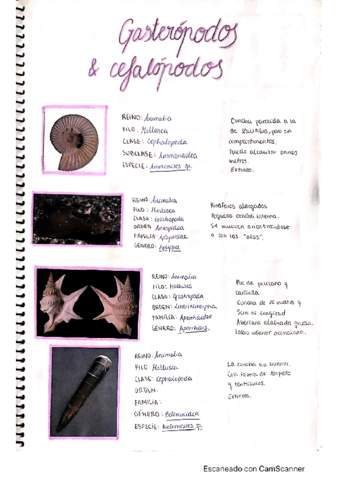 Gasterópodos
& cefalópodos
REINO: Animalia
FILO: Mollusca
CLASE: Cephalopoda
SUBCLASE: Ammonoidea
ESPECIE: Ammonites sp.
Concha parecida a la
de Nautilus, pero sin
compartimentos.
Puede alcanzar
metros.
Extinto.
REINO: Animalia
FILO: Mollusca
CLASE: Gastropoda
ORDEN: Anaspidea
FAMILIA: Aplysiidae
GÉNERO: Aplysia
alargados
Pequeña concha interna.
Se mueven
con las "alas".
REINO: Animalia
FILO: Mollusca
CLASE: Gastropoda
ORDEN:
FAMILIA: Aporrhaidae
GÉNERO: Aporrhais
Pie de pelícano y
Concha de 10 vueltas y
5cm de longitud
Abertura alargada gruesa.
Labio
REINO: Animalia
FILO: Mollusca
CLASE: Cephalopoda
ORDEN:
FAMILIA:
GÉNERO: Belemnoidea
ESPECIE: Belemnites sp.
La concha es interior.
Con forma de
y tentáculos.
Extintos.
Escaneado con CamScanner